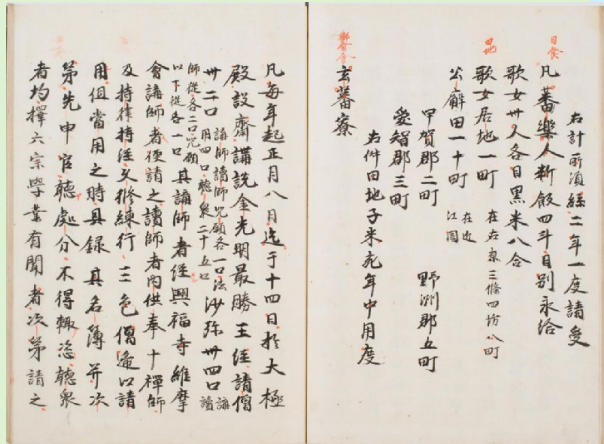 右計所須絲二年一度請受
日食
凡蕃樂人新飯四斗日別永給
歌女卅人各日黒米八合
歌女居地一町 在右京三條四坊八町
公廨田一十町 在近江国
甲賀郡二町 野洲郡五町
愛智郡三町
右件田地子米充年中用度
玄蕃寮
凡毎年起正月八日迄于十四日於大極
殿設齋講説金光明最勝王経請僧
卅二口 講師讀師咒願各一口法用四口聴衆二十五口 沙弥卅四口 講讀
師従各二口咒願以下従各一口 其講師者経興福寺維摩
會講師者便請之讀師者内供奉十禅師
及持律持経久修練行三色僧逓以請
用但當用之時具録其名簿并次
第先申官聴處分不得輙恣聴衆
者均擇六宗學業有聞者次第請之